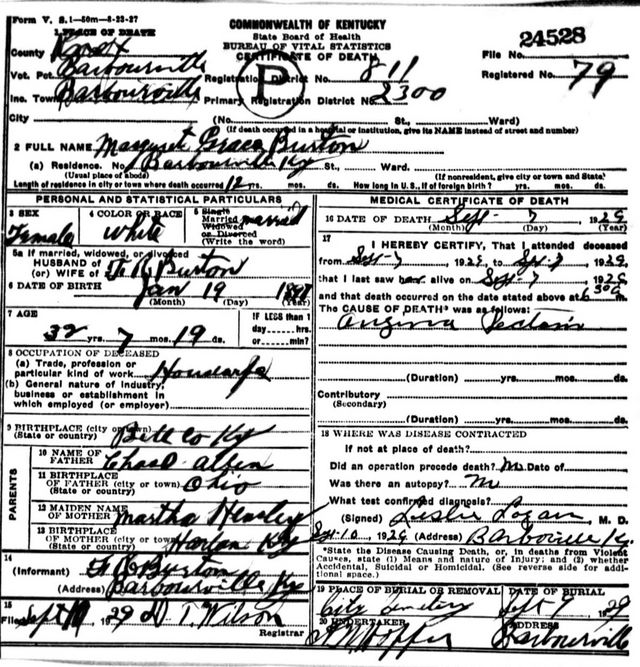 Form V. S. 1—50m—8-23-27
COMMONWEALTH OF KENTUCKY
State Board of Health
BUREAU OF VITAL STATISTICS
CERTIFICATE OF DEATH
1 PLACE OF DEATH
County Knox
Vot. Pct. Barbourville
Inc. Town Barbourville
City
Registration District No. 811
Primary Registration District No. 2300
P
File No. 24528
Registered No. 79
(No. St., Ward)
(If death occurred in a hospital or institution, give its NAME instead of street and number)
2 FULL NAME Margaret Grace Burton
(a) Residence. No. Barbourville Ky St., Ward.
(Usual place of abode) (If nonresident, give city or town and State)
Length of residence in city or town where death occurred 12 yrs. mos. ds. How long in U. S., if of foreign birth? yrs. mos. ds.
PERSONAL AND STATISTICAL PARTICULARS
3 SEX Female
4 COLOR OR RACE White
5 Single Married Widowed or Divorced (Write the word) married
5a If married, widowed, or divorced
HUSBAND of
(or) WIFE of Burton
6 DATE OF BIRTH Jan 19
(Month) (Day) (Year)
7 AGE
32 yrs. 7 mos. 19 ds.
IF LESS than 1
day------hrs.
or------min?
8 OCCUPATION OF DECEASED
(a) Trade, profession or
particular kind of work
(b) General nature of industry,
business or establishment in
which employed (or employer)
9 BIRTHPLACE (city or town) Bell Co Ky
(State or country)
PARENTS
10 NAME OF
FATHER Chas
11 BIRTHPLACE
OF FATHER (city or town) Ohio
(State or country)
12 MAIDEN NAME
OF MOTHER Martha Hensley
13 BIRTHPLACE
OF MOTHER (city or town) Harlan Ky
(State or country)
14
(Informant) Burton
(Address) Barbourville Ky
15
Filed Sept 1929 D T. Wilson
Registrar
MEDICAL CERTIFICATE OF DEATH
16 DATE OF DEATH Sept- 7 1929
(Month) (Day) (Year)
17
I HEREBY CERTIFY, That I attended deceased
from Sept-7 1929, to Sept-7 1929,
that I last saw her alive on Sept-7 1929
and that death occurred on the date stated above at 6 30
The CAUSE OF DEATH* was as follows:
Angina Pectoris
(Duration) yrs. mos. ds.
Contributory
(Secondary)
(Duration) yrs. mos. ds.
18 WHERE WAS DISEASE CONTRACTED
If not at place of death?
Did an operation precede death? Date of
Was there an autopsy?
What test confirmed diagnosis?
(Signed) Leslie Logan M. D.
Sept-10 1929 (Address) Barbourville Ky.
*State the Disease Causing Death, or, in deaths from Violent
Causes, state (1) Means and nature of Injury; and (2) whether
Accidental, Suicidal or Homicidal. (See reverse side for addi-
tional space.)
19 PLACE OF BURIAL OR REMOVAL DATE OF BURIAL
City Cemetery Sept 9 1929
20 UNDERTAKER ADDRESS
Hopper Barbourville